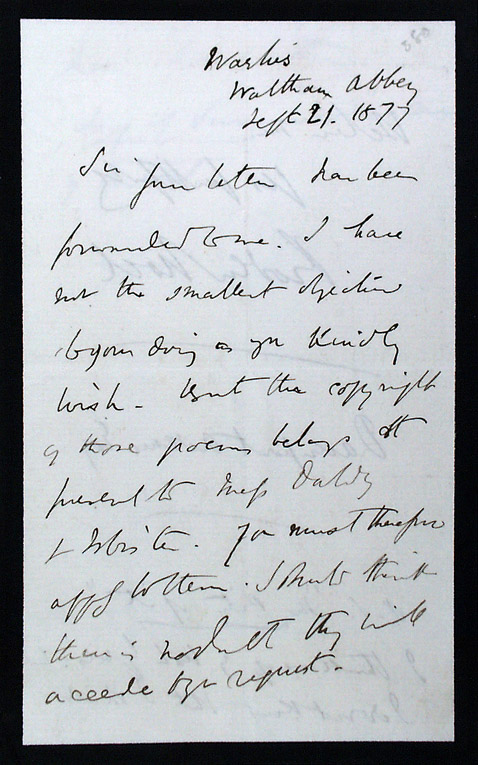 Warlies
Waltham Abbey
Sept 21. 1877
Sir your letter has been
forwarded to me. I have
not the smallest objection
to your doing as you kindly
wish - But the copyright
of those poems belongs at
present to Mess Daldy
& Isbister. You must therefore
apply to them. I should think
there is no doubt they will
accede to yr request.